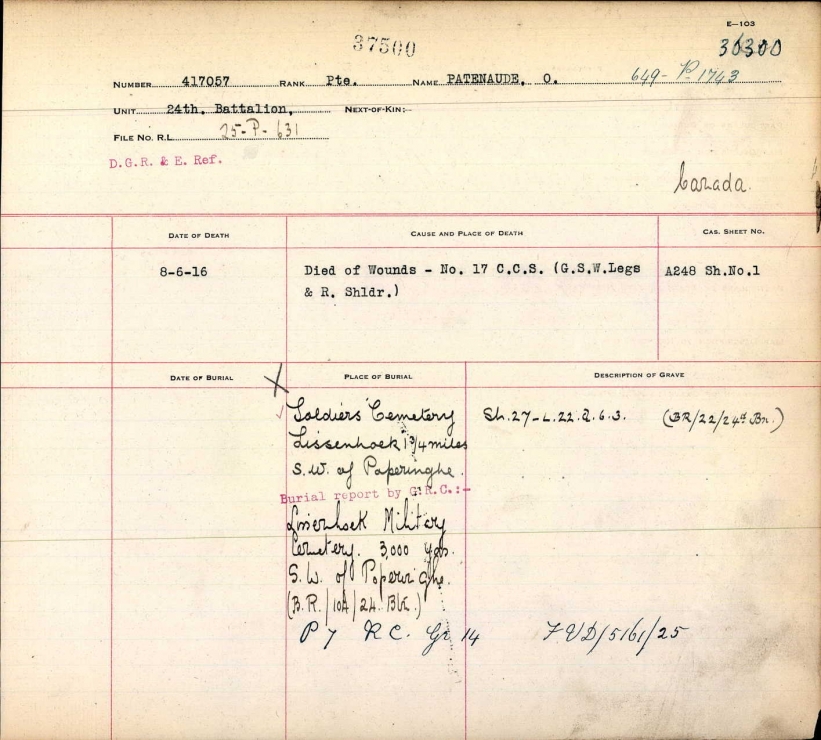 E—103
37500
30300
NUMBER 417057 RANK Pte. NAME PATENAUDE, O. 649- P. 1743
UNIT 24th. Battalion, NEXT-OF-KIN:—
FILE NO. R.L. 25-P-631
D.G.R. & E. Ref.
Canada.
DATE OF DEATH CAUSE AND PLACE OF DEATH CAS. SHEET NO.
8-6-16 Died of Wounds - No. 17 C.C.S. (G.S.W.Legs A248 Sh.No.1
& R. Shldr.)
DATE OF BURIAL PLACE OF BURIAL DESCRIPTION OF GRAVE
Soldiers' Cemetery Sh.27-L.22.d.6.3. (BR/22/24th Bn.)
Lissenhoek 1 3/4 miles
S.W. of Poperinghe.
Burial report by G.R.C.:-
Lijssenhoek Military
Cemetery. 3,000 yds.
S.W. of Poperinghe.
(B.R./10A/24. Blk.)
P 7 R C. Gr 14 FVD/5161/25